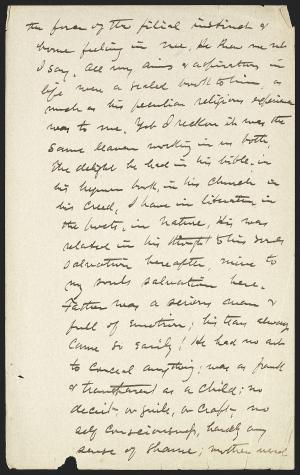 the force of the filial instinct &
home feeling in me. He knew me not
I say. All my aims & aspirations in
life were a sealed book to him, as
much as his peculiar religious experience
was to me. Yet I reckon it was the
same leaven working in us both.
The delight he had in his bible, in
his hymn book, in his church in
his creed, I have in literature, in
the poets, in nature. His was
related in his thought to his souls
salvation hereafter, mine to
my souls salvation here.
Father was a serious man &
full of emotion; his tears always
came so easily! He had no art
to conceal anything; was as frank
& transparent as a child; no
deceit or guile, or craft- no
self consciousness, hardly any
sense of shame; mother used